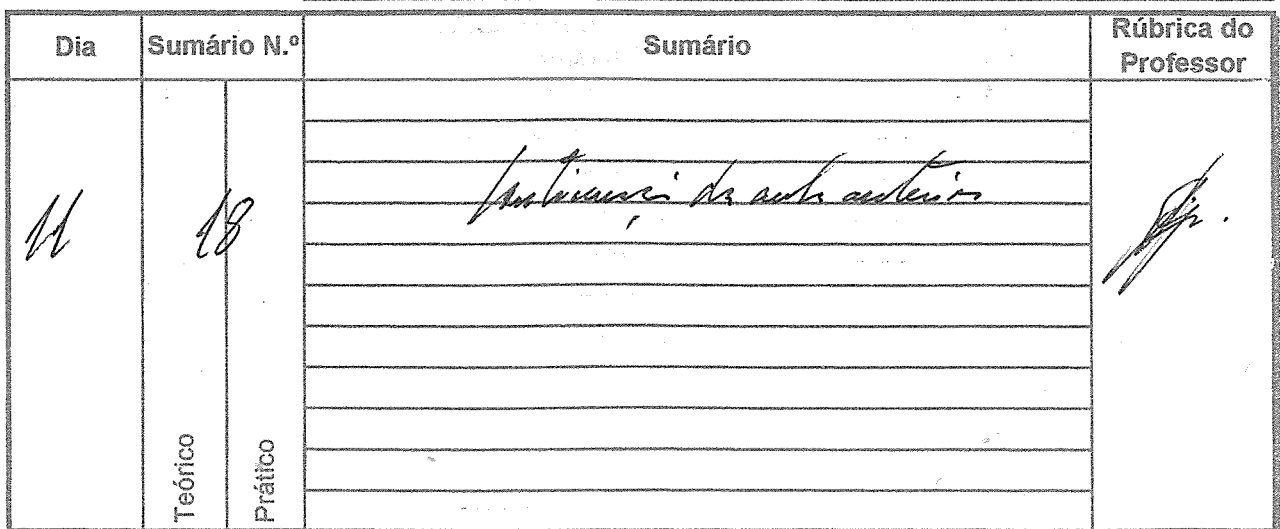 Dia Sumário N.º Sumário Rúbrica do Professor
11 18 da aula anterior
Teórico Prático